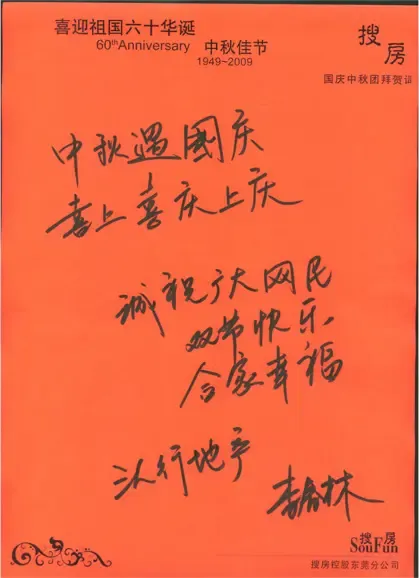 喜迎祖国六十华诞
60thAnniversary 中秋佳节
1949~2009
搜房
国庆中秋团拜贺
中秋遇國庆
喜上喜庆上庆
诚祝广大网民
双节快乐
合家幸福
行地产
李 林
搜房
SouFun
搜房控股东莞分公司